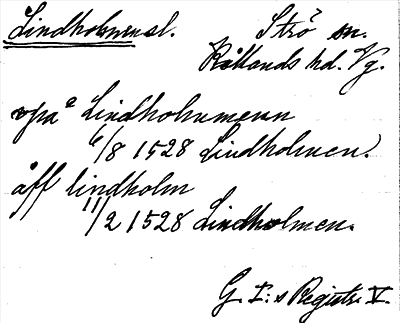 Lindholmen sl. Strö sn.
Kållands hd. Vg.
vpå Lindholmenn
6/8 1528 Lindholmen.
åff lindholm
11/2 1528 Lindholmen.
G. I:s Registr. V.